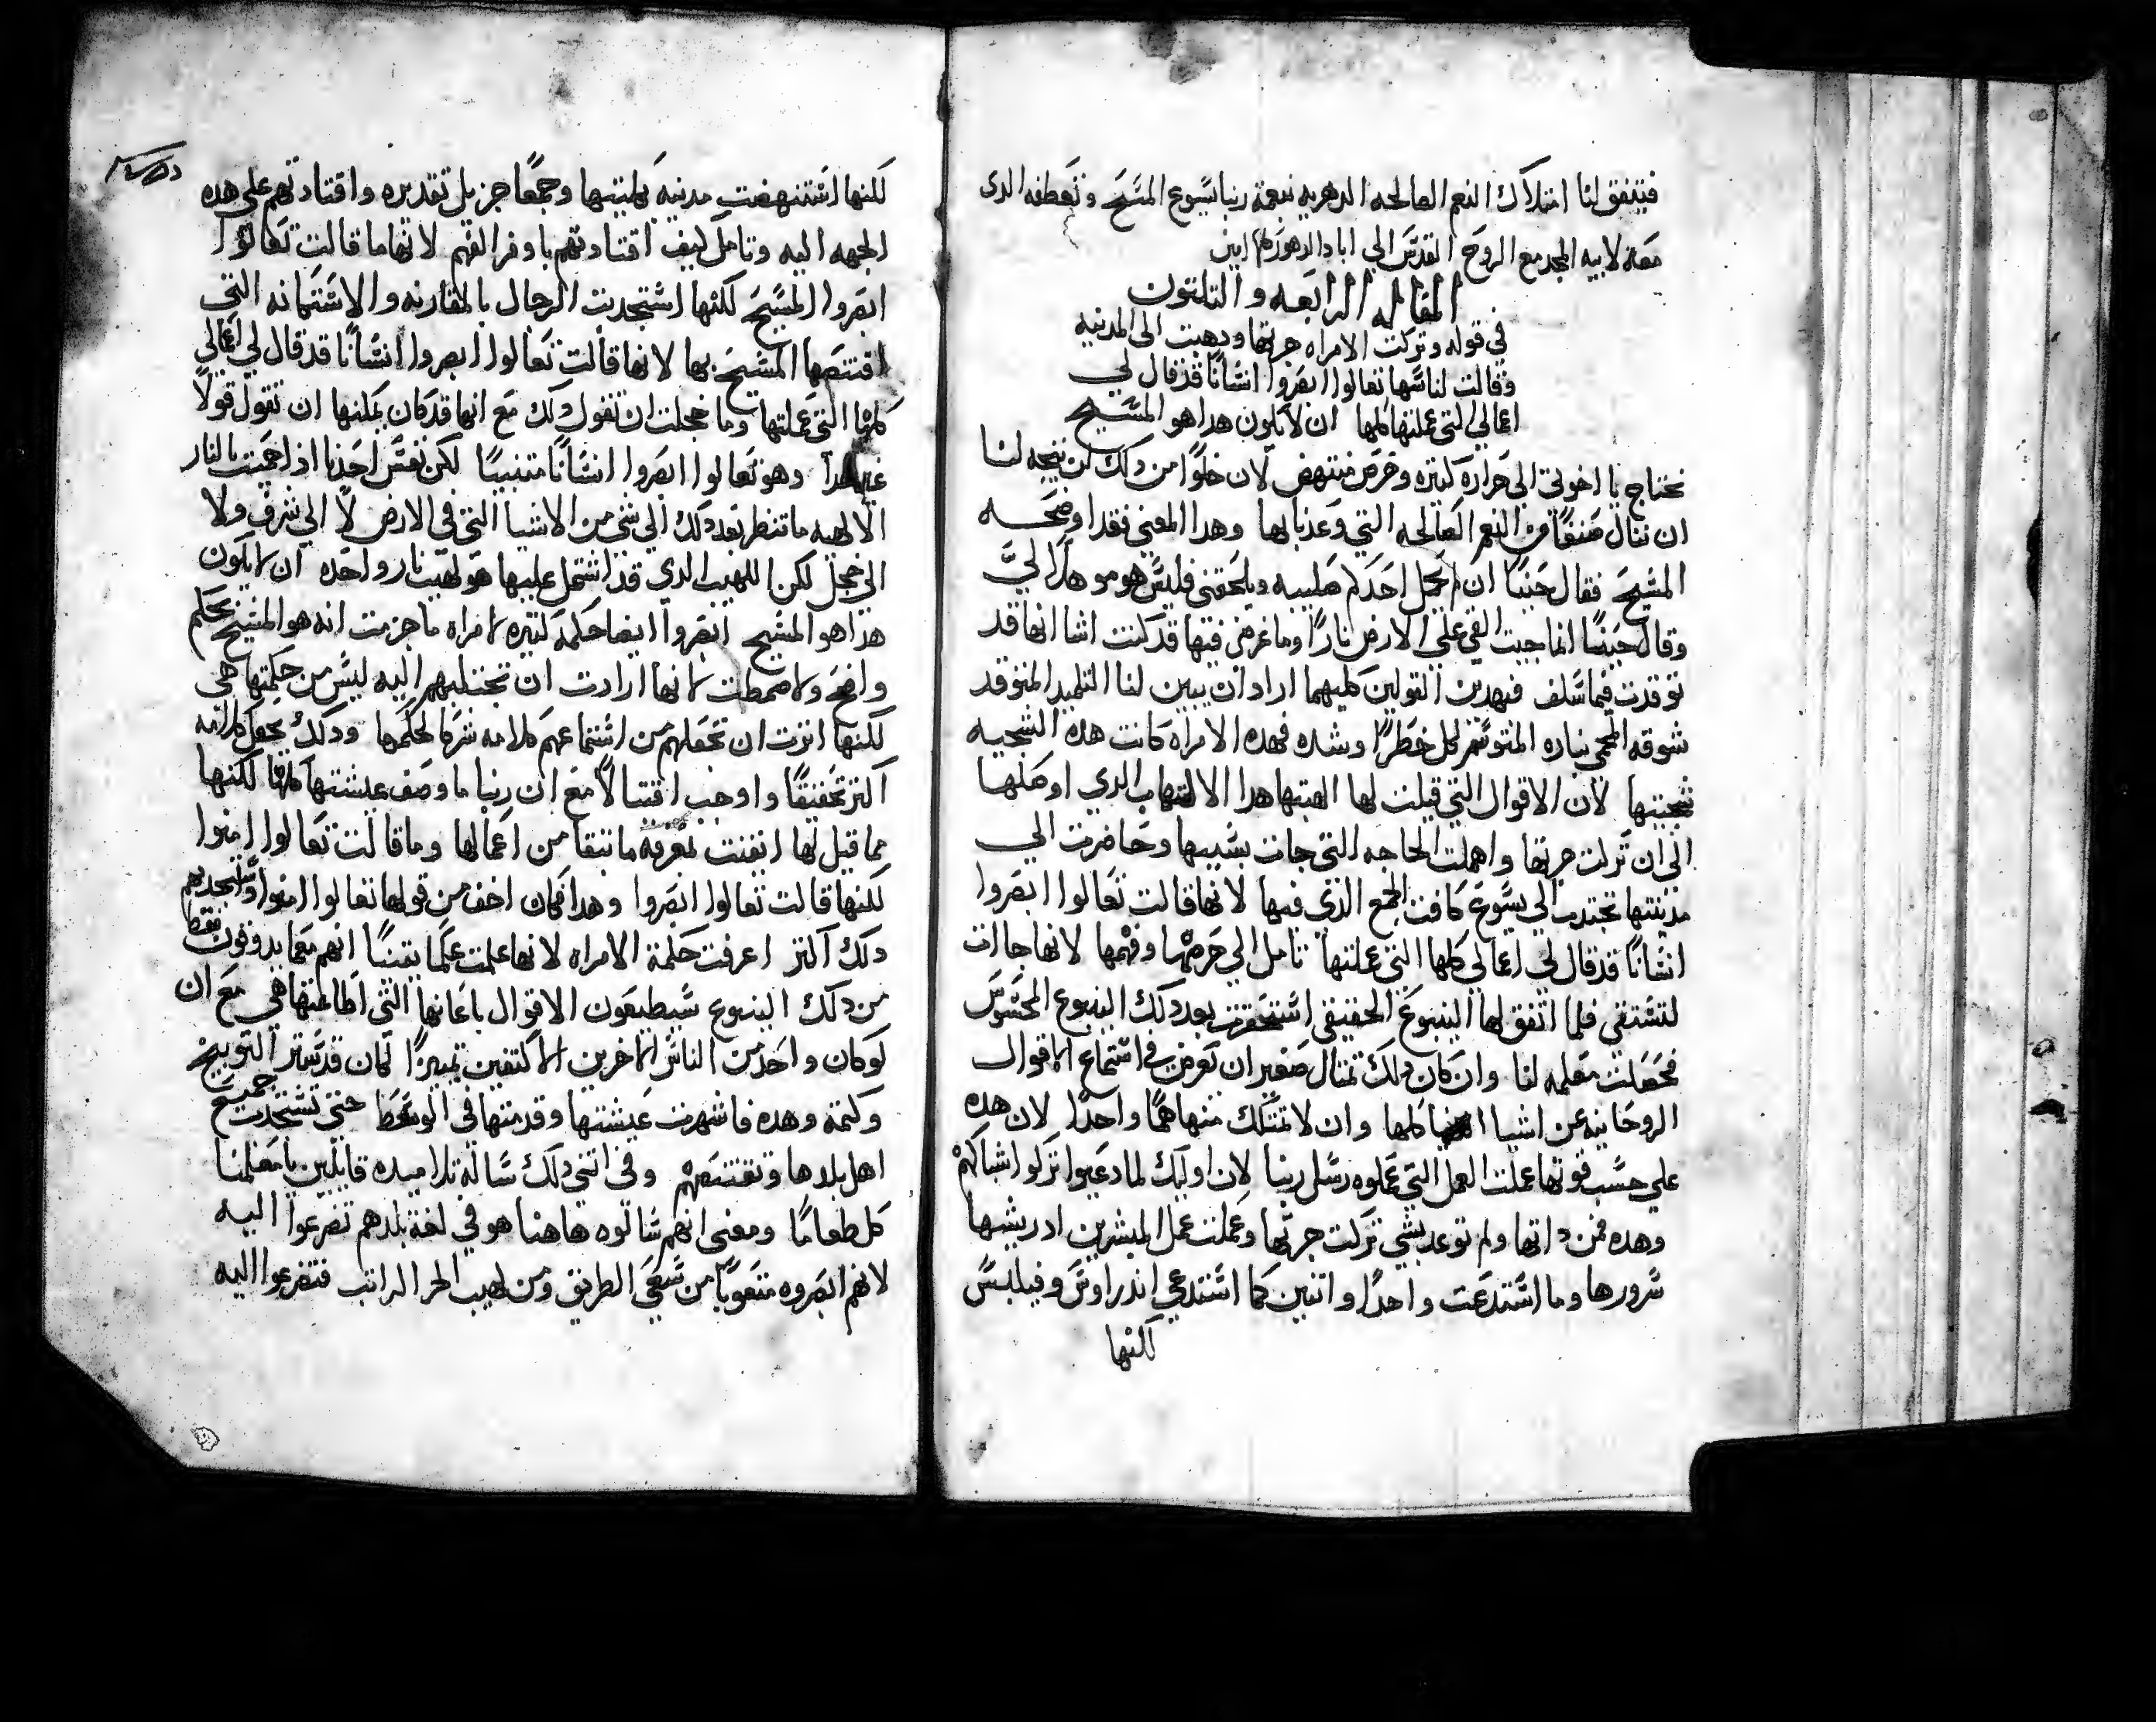 فيتفق لنا امتلاك النعم الصالحه الدهريه بنعمة ربنا يسوع المسيح وتعطفه الدى
معه لابيه المجد مع الروح القدس الي اباد الدهور كلها امين
المقاله الرابعه والتلتون
في قوله وتركت الامراه جرتها ودهبت الى المدينه
وقالت لناسها تعالوا ابصروا انسانا قد قال لي
اعمالي التي عملتها كلها ان لا يكون هدا هو المسيح
نحتاج يا اخوتي الي حراره كتيره وحرص منتهض لان خلوا من دلك لن يتجه لنا
ان ننال صنفا من النعم الصالحه التي وعدنا بها وهدا المعني فقد اوضحه
المسيح فقال حينا ان لم يحمل احدكم صليبه ويلحقني فليس هو موهلا لي
وقال حينا انما جيت القي علي الارض نارا وما غرضي فيها قد كنت اشا انها قد
توقدت فيما سلف فبهدين القولين كليهما اراد ان يبين لنا التلميد المتوقد
شوقه المحمي بناره المتوسم لكل خطرا وشده فهده الامراه كانت هده السجيه
سجيتها لان الاقوال التي قيلت لها الهبتها هدا الالتهاب الدي اوصلها
الى ان تركت جرتها واهملت الحاجه التي جات بسببها وحاضرت الي
مدينتها تجتدب الي يسوع كافت الجمع الدي فيها لانها قالت تعالوا ابصروا
انسانا قد قال لي اعمالي كلها التي عملتها تامل الي حرصها وفهمها لانها جاات
لتستقي فلما اتفق لها الينبوع الحقيقي استحقرت بعد دلك الينبوع المحسوس
فحصلت معلمه لنا وان كان دلك تمتال صغير ان نعرض في استماع الاقوال
الروحانيه عن اشيا الدنيا كلها وان لا نمتلك منها هما واحدا لان هده
علي حسب قوتها عملت العمل التي عملوه رسل ربنا لان اوليك لما دعيوا تركوا شباكهم
وهده فمن داتها ولم توعد بشي تركت جرتها وعملت عمل المبشرين ادريشها
سرورها وما استدعت واحدا واتنين كما استدعي اندراوس وفيلبس
لكنها
لكنها استنهضت مدينه بهليتها وجمعا جزيل تقديره واقتادتهم علي هده
الجهه اليه وتامل كيف اقتادتهم باوفر الفهم لانها ما قالت تعالوا
ابصروا المسيح لكنها استجدبت الرجال بالمقارنه والاستمانه التي
اقتنصها المسيح بها لانها قالت تعالوا ابصروا انسانا قد قال لي اعمالي
كلها التي عملتها وما خجلت ان تقول دلك مع انها قد كان يمكنها ان تقول قولا
غير هدا وهو تعالوا ابصروا انسانا متنبيا لكن نفس احدنا اذا حميت بالنار
الالهيه ما تنظر بعد دلك الي شي من الاشيا التي في الارض لا الي شرف ولا
الي خجل لكن اللهيب الدي قد اشتمل عليها هو لهيب نار واحده ان لا يكون
هدا هو المسيح ابصروا ايضا حكمة كتيره لامراه ما جزمت انه هو المسيح بحكم
واضح ولا صمطت لانها ارادت ان تجتدبهم اليه ليس من حكمتها هي
لكنها اترت ان تجعلهم من استماعهم كلامه شركا لحكمها ودلك يجعل كلامه
اكتر تحقيقا واوجب اقتبالا مع ان ربنا ما وصف عيشتها كلها لكنها
مما قيل لها ايقنت بمعرفة ما تبقا من اعمالها وما قالت تعالوا امنوا
لكنها قالت تعالوا ابصروا وهدا فكان اخف من قولها تعالوا امنوا وسيجدبهم
دلك اكتر اعرفت حكمة الامراه لانها علمت علما يقينا انهم معما يدوقون فقط
من دلك الينبوع سيطيعون الاقوال باعيانها التي اطاعتها هي مع ان
لو كان واحد من الناس الاخرين الاكتفين تمييزا لكان قد ستر التوبيخ
وكتمه وهده فاشهرت عيشتها وقدمتها في الوسط حتي تستجدب جميع
اهل بلدها وتقتنصهم وفي اتني دلك ساله تلاميده قايلين يا معلمنا
كل طعاما ومعني انهم سالوه هاهنا هو في لغة بلدهم تضرعوا اليه
لانهم ابصروه متعوبا من سعي الطريق ومن لهيب الحر الراتب فتضرعوا اليه